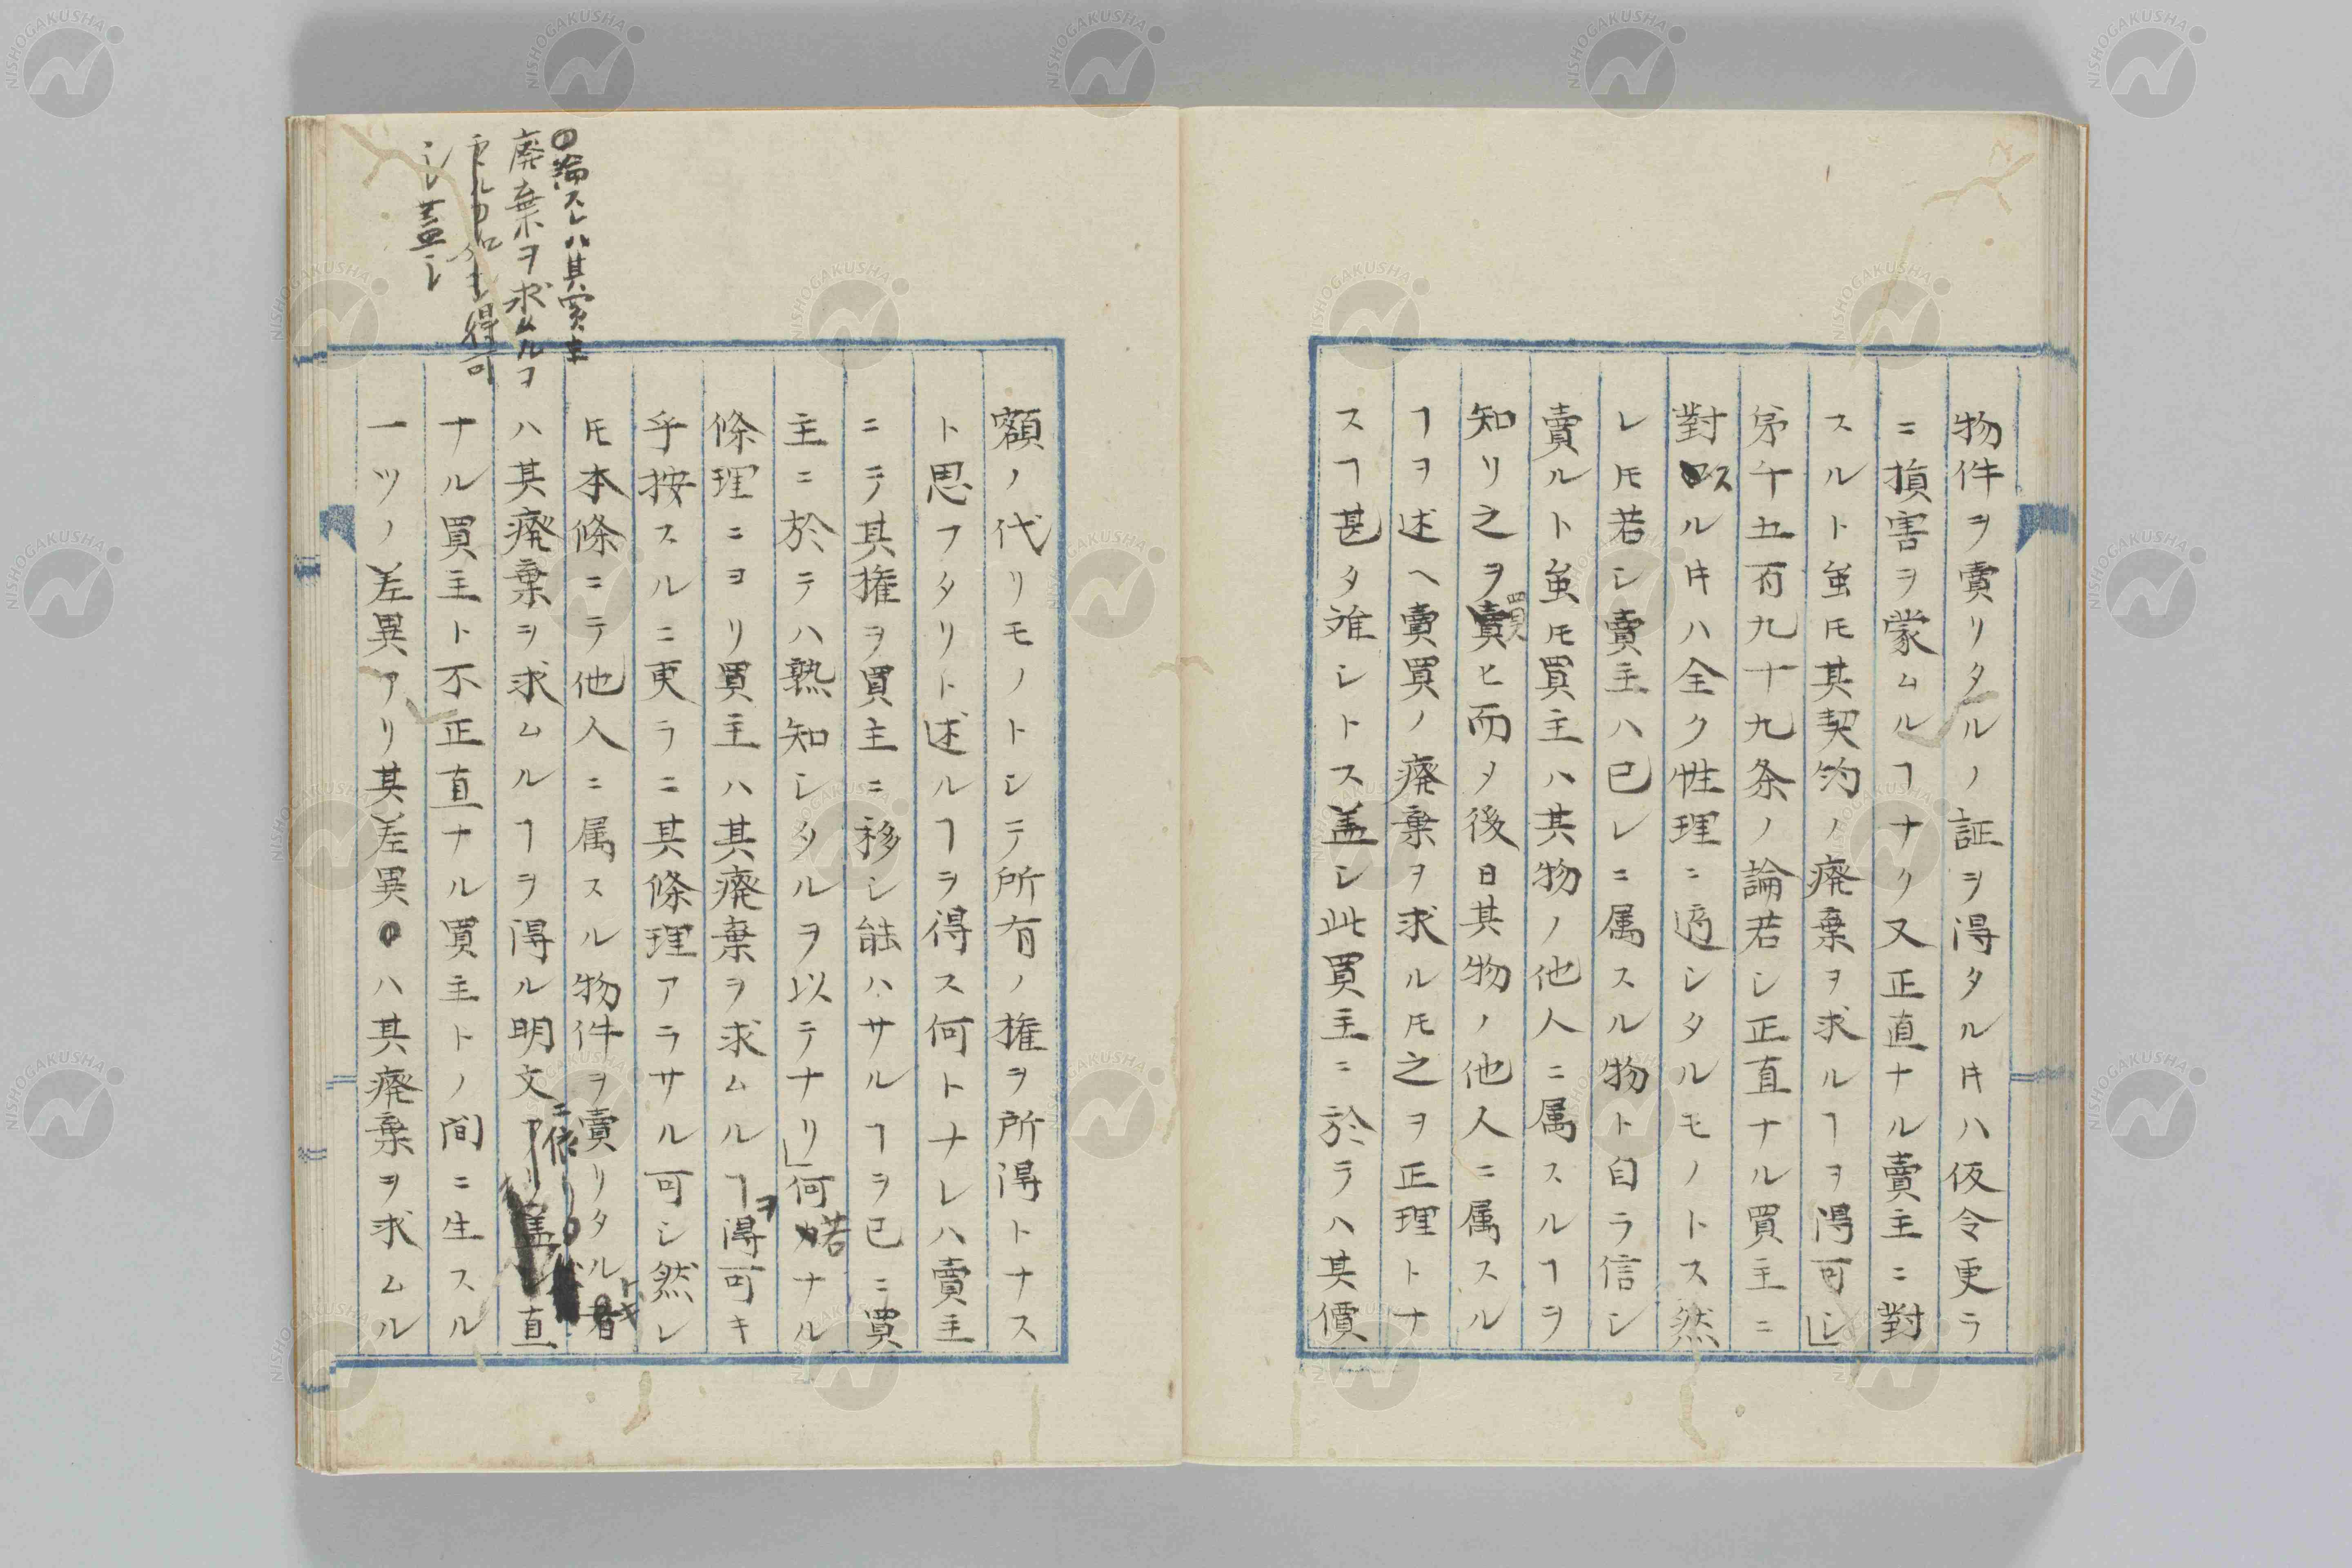 物件ヲ賣リタルノ証ヲ得タルキハ仮令更ラ
ニ損害ヲ蒙ムルヿナク又正直ナル賣主ニ對
スルト虽𪜈其契約ノ廃棄ヲ求ルヿヲ得可シ」
第千五百九十九条ノ論若シ正直ナル買主ニ
對スルキハ全ク性理ニ適シタルモノトス然
レ𪜈若シ賣主ハ已レニ属スル物ト自ラ信シ
賣ルト虽𪜈買主ハ其物ノ他人ニ属スルヿヲ
知リ之ヲ買ヒ而メ後日其物ノ他人ニ属スル
ヿヲ述ヘ賣買ノ廃棄ヲ求ル𪜈之ヲ正理トナ
スヿ甚タ难シトス盖シ此買主ニ於ラハ其價
額ノ代リモノトシテ所有ノ権ヲ所得トナス
ト思フタリト述ルヿヲ得ス何トナレハ賣主
ニテ其権ヲ買主ニ移シ能ハサルヿヲ已ニ買
主ニ於テハ熟知シタルヲ以テナリ」何若ナル
條理ニヨリ買主ハ其廃棄ヲ求ムルヿヲ得可キ
乎按スルニ更ラニ其條理アラサル可シ然レ
𪜈本條ニテ他人ニ属スル物件ヲ賣リタルトキ
ハ其廃棄ヲ求ムルヿヲ得ル明文ニ依リ直
ナル買主ト不正直ナル買主トノ間ニ生スル
一ツノ差異アリ其差異ハ其廃棄ヲ求ムル
論スレハ其買主
廃棄ヲ求ムルヲ
得可
シ盖シ
NISHOGAKUSHA